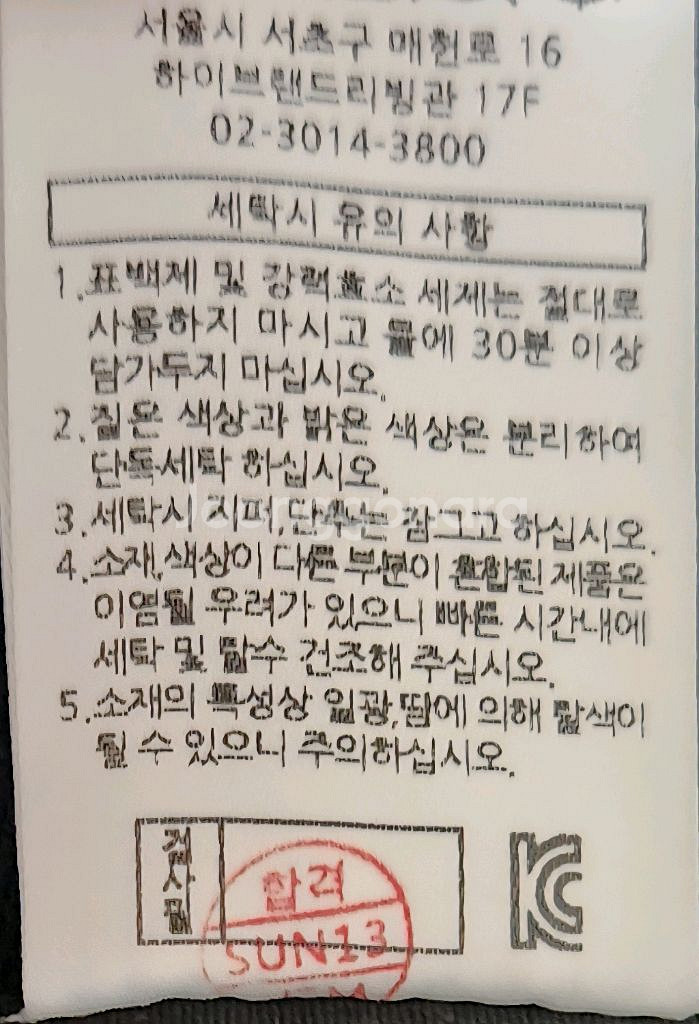 서울시 서초구 매헌로 16
하이브랜드리빙관 17F
02-3014-3800
세탁시 유의 사항
1. 표백제 및 강력효소 세제는 절대로
사용하지 마시고 물에 30분 이상
담가두지 마십시오.
2. 짙은 색상과 밝은 색상은 분리하여
단독세탁 하십시오.
3. 세탁시 지퍼,단추는 잠그고 하십시오.
4. 소재,색상이 다른 부분이 혼합된 제품은
이염될 우려가 있으니 빠른 시간내에
세탁 및 탈수 건조해 주십시오.
5. 소재의 특성상 일광,땀에 의해 탈색이
될 수 있으니 주의하십시오.
검사필
합격
SUN13
KC